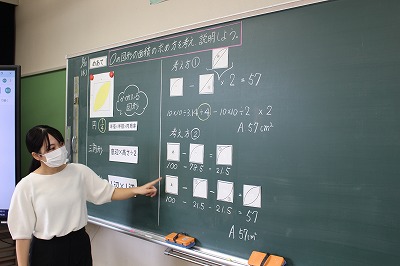 めあて
の図形の面積の求め方を考え 説明しよう。
考え方①
× 2 = 57
10×10×3.14÷4 - 10×10÷2 ×2
A 57cm²
円
三角形
底辺×高さ÷2
考え方②
100 - 78.5 = 21.5
100 - 21.5 - 21.5 = 57
A 57cm²